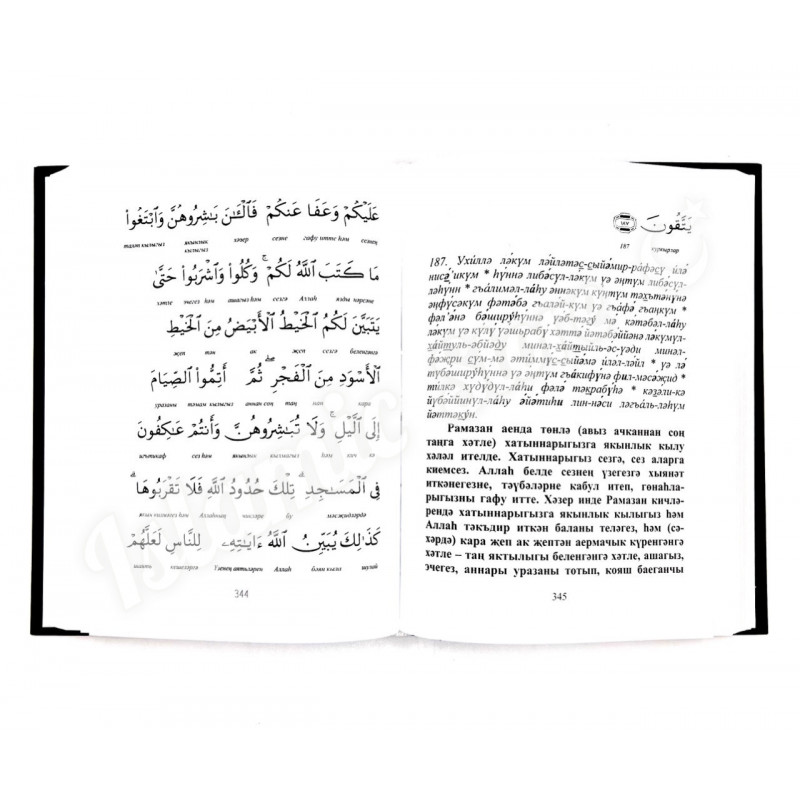 عَلَيْكُمْ وَعَفَا عَنكُمْ فَٱلْـَٰٔنَ بَـٰشِرُوهُنَّ وَٱبْتَغُوا۟
тәләп кылыгыз якынлык кылыгыз хәзер сезне гафу итте һәм сезнең
مَا كَتَبَ ٱللَّهُ لَكُمْ ۚ وَكُلُوا۟ وَٱشْرَبُوا۟ حَتَّىٰ
хәтле эчегез һәм ашагыз һәм сезгә Аллаһ язды нәрсәне
يَتَبَيَّنَ لَكُمُ ٱلْخَيْطُ ٱلْأَبْيَضُ مِنَ ٱلْخَيْطِ
җеп тән ак җеп сезгә беленгәнгә
ٱلْأَسْوَدِ مِنَ ٱلْفَجْرِ ۖ ثُمَّ أَتِمُّوا۟ ٱلصِّيَامَ
уразаны тәмам кылыгыз аннан соң таң нан кара
إِلَى ٱلَّيْلِ ۚ وَلَا تُبَـٰشِرُوهُنَّ وَأَنتُمْ عَـٰكِفُونَ
игътикаф сез һәм якынлык кылмагыз һәм кич кә
فِى ٱلْمَسَـٰجِدِ ۗ تِلْكَ حُدُودُ ٱللَّهِ فَلَا تَقْرَبُوهَا ۗ
якын килмәгез һәм Аллаһның чикләре бу мәсҗидләрдә
كَذَٰلِكَ يُبَيِّنُ ٱللَّهُ ءَايَـٰتِهِۦ لِلنَّاسِ لَعَلَّهُمْ
шаять кешеләргә Үзенең аятьләрен Аллаһ бәян кыла шулай
344
يَتَّقُونَ ١٨٧
187 куркырлар
187. Ухиллә ләкүм ләйләтәс-сыйәмир-рафәсү илә
нисә́икүм * һүннә либәсүл-ләкүм үә әңтүм либәсүл-
ләһүннә * гъәлимәл-лаһу әннәкүм күңтүм тәхътәнүнә
әңфүсәкүм фәтәбә гъаләй-күм үә гъәфә гъәңкүм *
фәл́әнә бәширүһүннә үәб-тәгү мә кәтәбәл-лаһу
ләкүм үә күлү үәшьрабү хәттә йәтәбәййәнә ләкүмүл-
хайтуль-әбйәду минәл-хайтыйль-әс-үәди минәл-
фәҗри сүм-мә әтиммүс-сыйәмә иләл-ләйл * үә лә
түбәширүһүннә үә әңтүм гъәкифүнә фил-мәсәҗид *
тилкә хүдүдүл-лаһи фәлә тәкрабүһә * кәзәли-кә
йүбәййинүл-лаһу әйәтиһи лин-нәси ләгъәль-ләһүм
йәттәкун.
Рамазан аенда төнлә (авыз ачканнан соң
таңга хәтле) хатыннарыгызга якынлык кылу
хәләл ителде. Хатыннарыгыз сезгә, сез аларга
киемсез. Аллаһ белде сезнең үзегезгә хыянәт
иткәнегезне, тәүбәләрне кабул итеп, гөнаһла-
рыгызны гафу итте. Хәзер инде Рамазан кичлә-
рендә хатыннарыгызга якынлык кылыгыз һәм
Аллаһ тәкъдир иткән баланы теләгез, һәм (сә-
хәрдә) кара җеп ак җептән аермачык күренгәнгә
хәтле – таң яктылыгы беленгәнгә хәтле, ашагыз,
эчегез, аннары уразаны тотып, кояш баеганчы
345